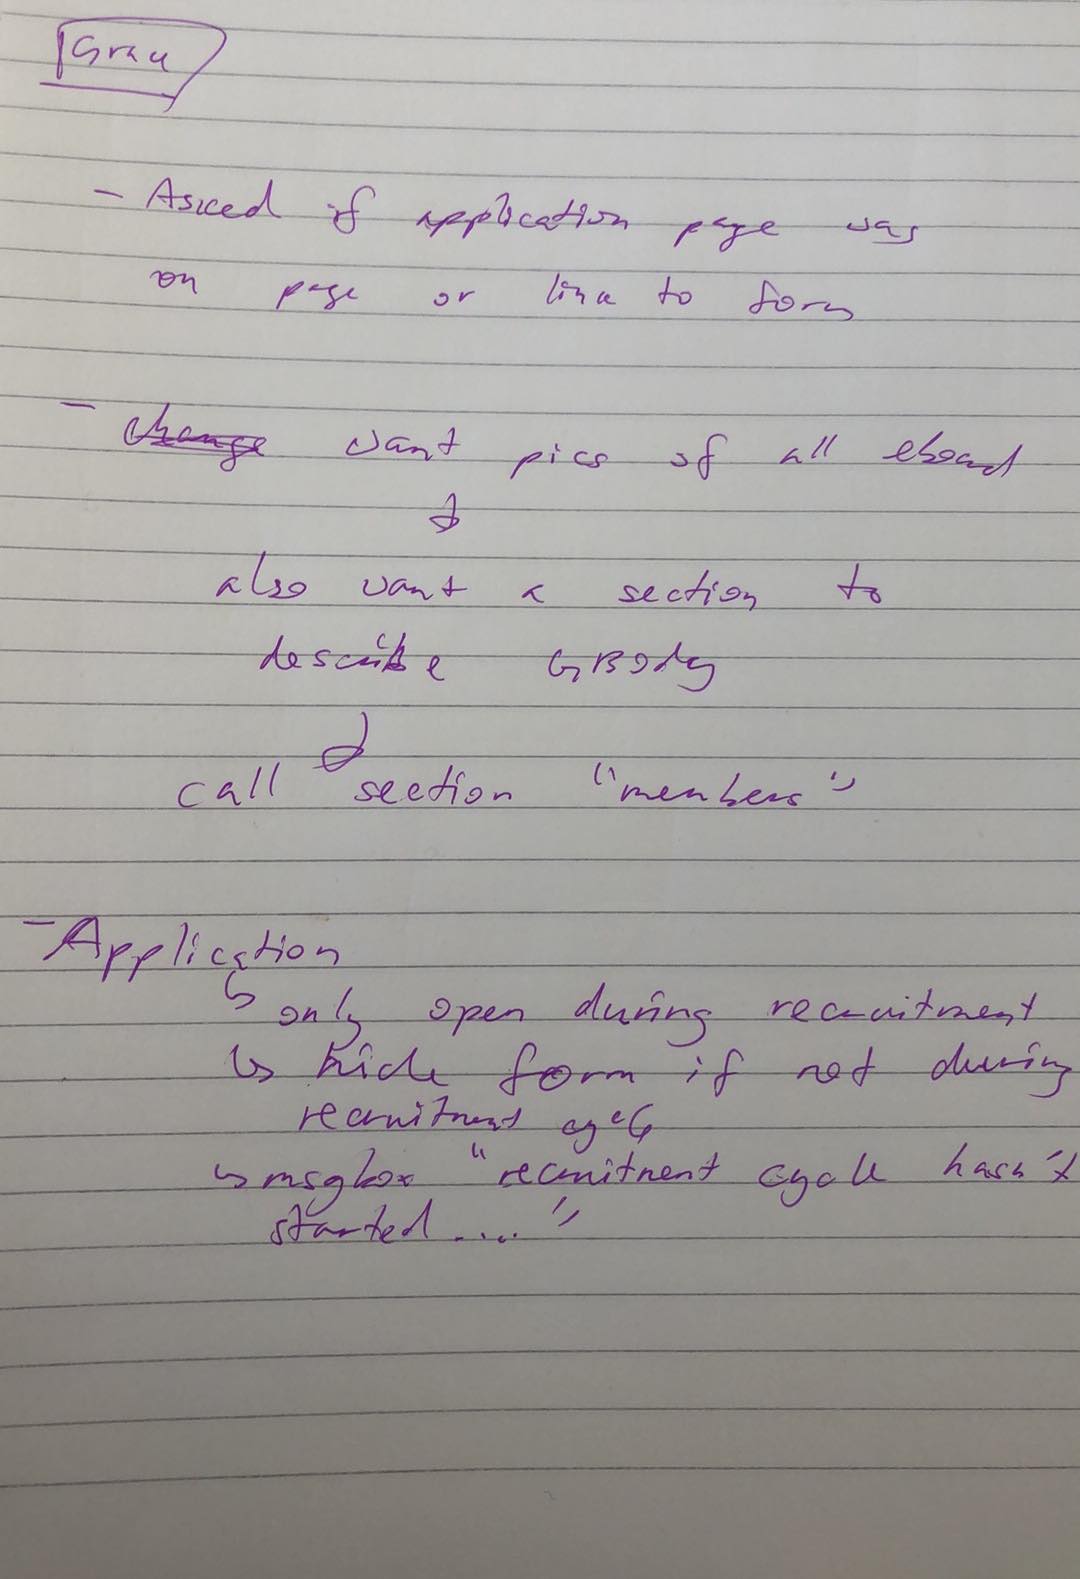 - Asked if application page was
on page or link to form
- change want pics of all eboard
also want a section to
describe GBody
call section "members"
- Application
↳ only open during recruitment
↳ hide form if not during
recruitment cycle
↳ msgbox "recruitment cycle hasn't
started...."